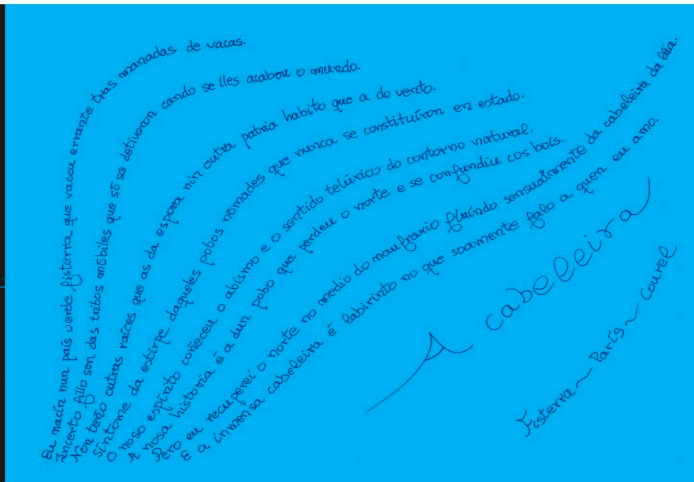 Eu nacín nun país verde fisterra que vagou errante tras manadas de vacas.
Incerto fillo son das tribos móbiles que só se detiveron cando se lles acabou o mundo.
Non teño outras raíces que as da espora nin outra patria habito que a do vento.
Síntome da estirpe daqueles pobos nómades que nunca se constituíron en estado.
O noso espírito coñeceu o abismo e o sentido telúrico do contorno natural.
A nosa historia é a dun pobo que perdeu o norte e se confundiu cos bois.
Pero eu recuperei o norte no medio do naufraxio fluíndo sensualmente da cabeleira da
E a inmensa cabeleira é labirinto no que soamente falo a quen eu amo.
A cabeleira
Fisterra ~ París ~ Courel